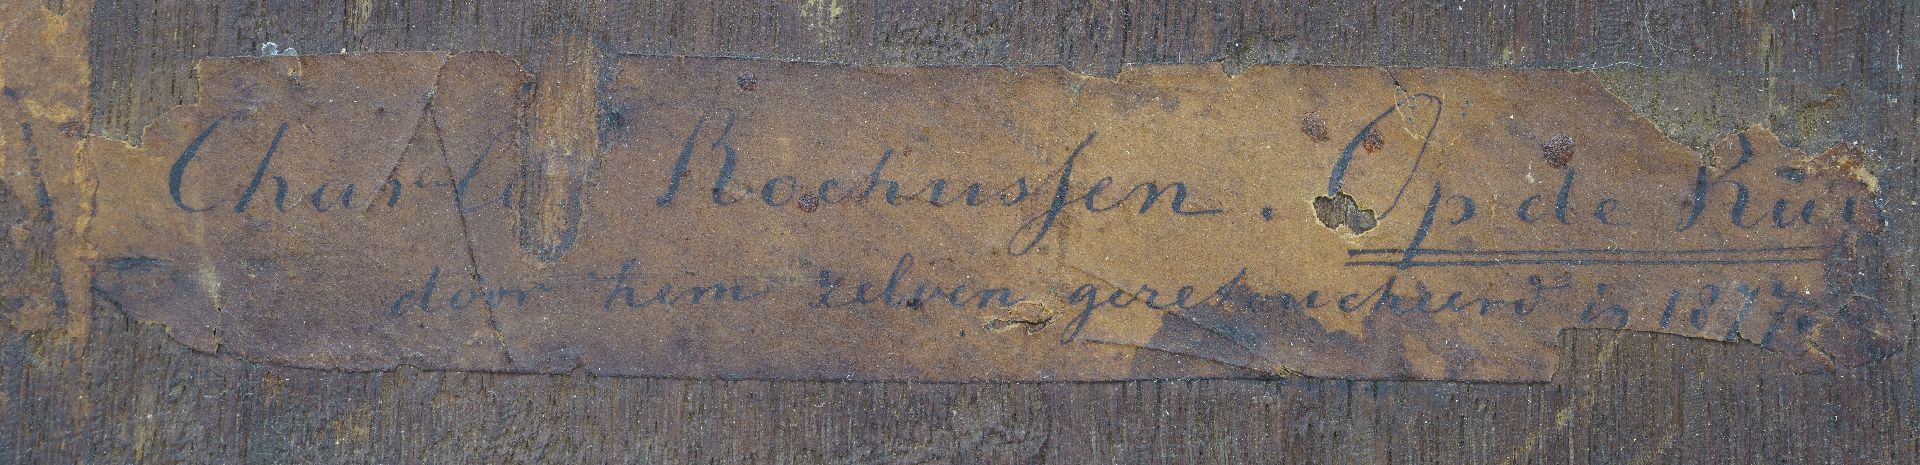 Charles Rochussen. Op de
door hem zelven geretoucheerd in 1877.